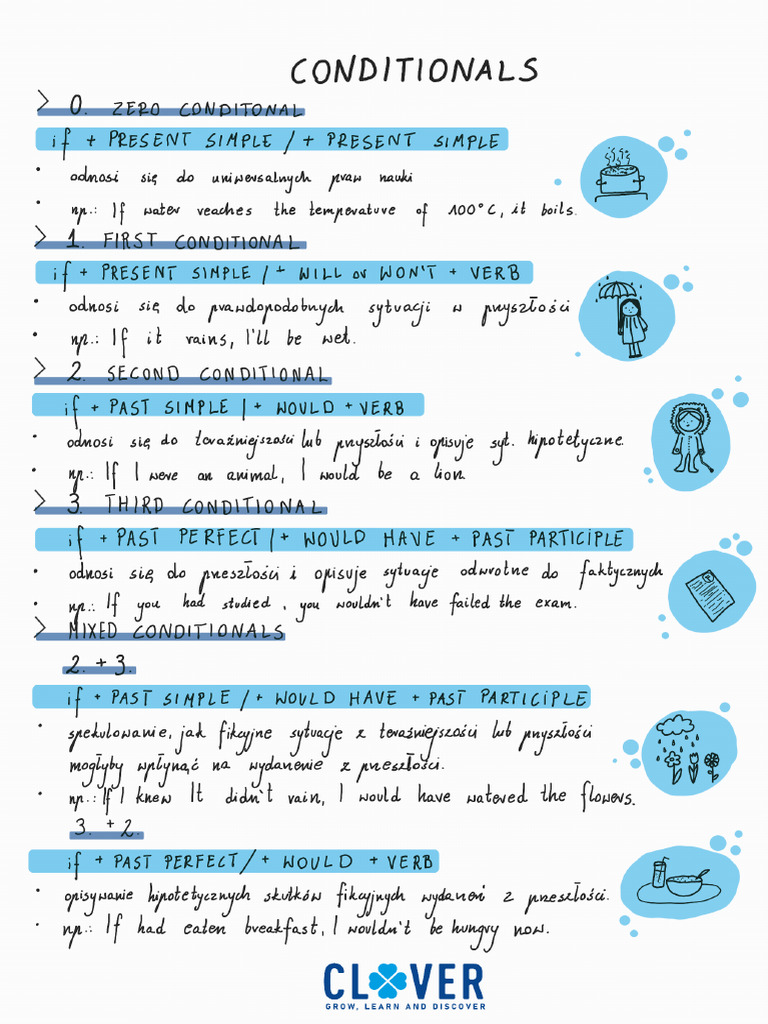 CONDITIONALS
> 0. ZERO CONDITONAL
if + PRESENT SIMPLE / + PRESENT SIMPLE
• odnosi się do uniwersalnych praw nauki
• np.: If water reaches the temperature of 100°C, it boils.
> 1. FIRST CONDITIONAL
if + PRESENT SIMPLE / + WILL or WON'T + VERB
• odnosi się do prawdopodobnych sytuacji w przyszłości
• np.: If it rains, I'll be wet.
> 2. SECOND CONDITIONAL
if + PAST SIMPLE / + WOULD + VERB
• odnosi się do teraźniejszości lub przyszłości i opisuje syt. hipotetyczne.
• np.: If I were an animal, I would be a lion.
> 3. THIRD CONDITIONAL
if + PAST PERFECT / + WOULD HAVE + PAST PARTICIPLE
• odnosi się do przeszłości i opisuje sytuacje odwrotne do faktycznych
• np.: If you had studied, you wouldn't have failed the exam.
> MIXED CONDITIONALS
2. + 3.
if + PAST SIMPLE / + WOULD HAVE + PAST PARTICIPLE
• spekulowanie, jak fikcyjne sytuacje z teraźniejszości lub przyszłości
mogłyby wpłynąć na wydarzenie z przeszłości.
• np.: If I knew It didn't rain, I would have watered the flowers.
3. + 2.
if + PAST PERFECT / + WOULD + VERB
• opisywanie hipotetycznych skutków fikcyjnych wydarzeń z przeszłości.
• np.: If had eaten breakfast, I wouldn't be hungry now.
CLOVER
GROW, LEARN AND DISCOVER